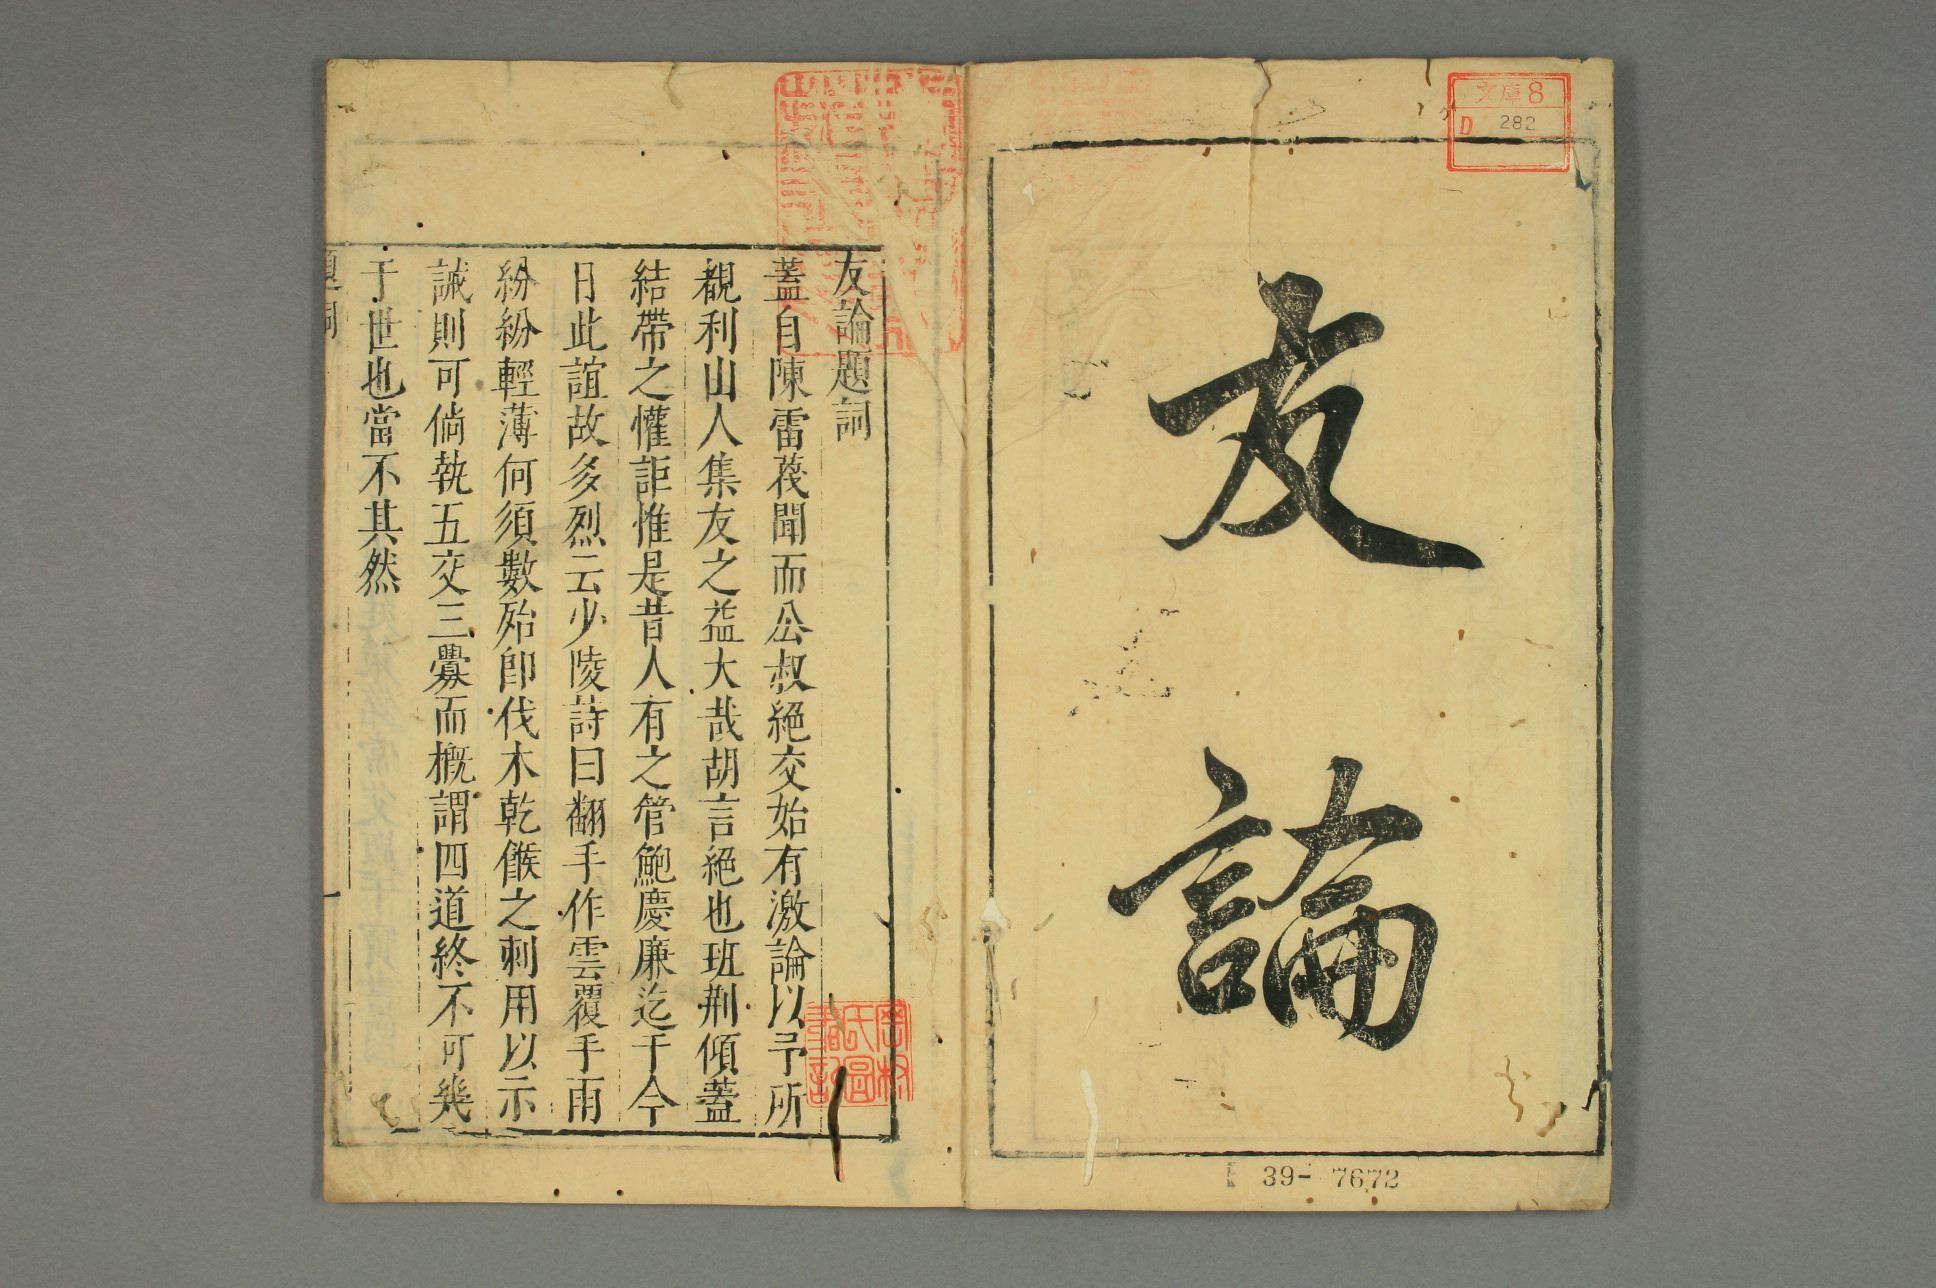 友論
文庫8
D 282
39- 7672
友論題詞
蓋自陳雷蔑聞而公叔絕交始有激論以予所
覩利山人集友之益大哉胡言絕也班荆傾蓋
結帶之懽詎惟是昔人有之管鮑慶廉迄于今
日此誼故多烈云少陵詩曰翻手作雲覆手雨
紛紛輕薄何須數殆卽伐木乾餱之刺用以示
誡則可倘執五交三釁而槪謂四道終不可幾
于世也當不其然
題詞
一